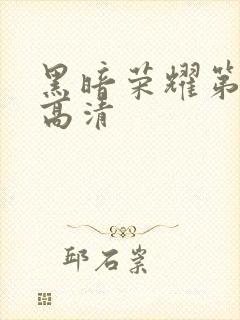 黑暗荣耀第
高清
邱石崇